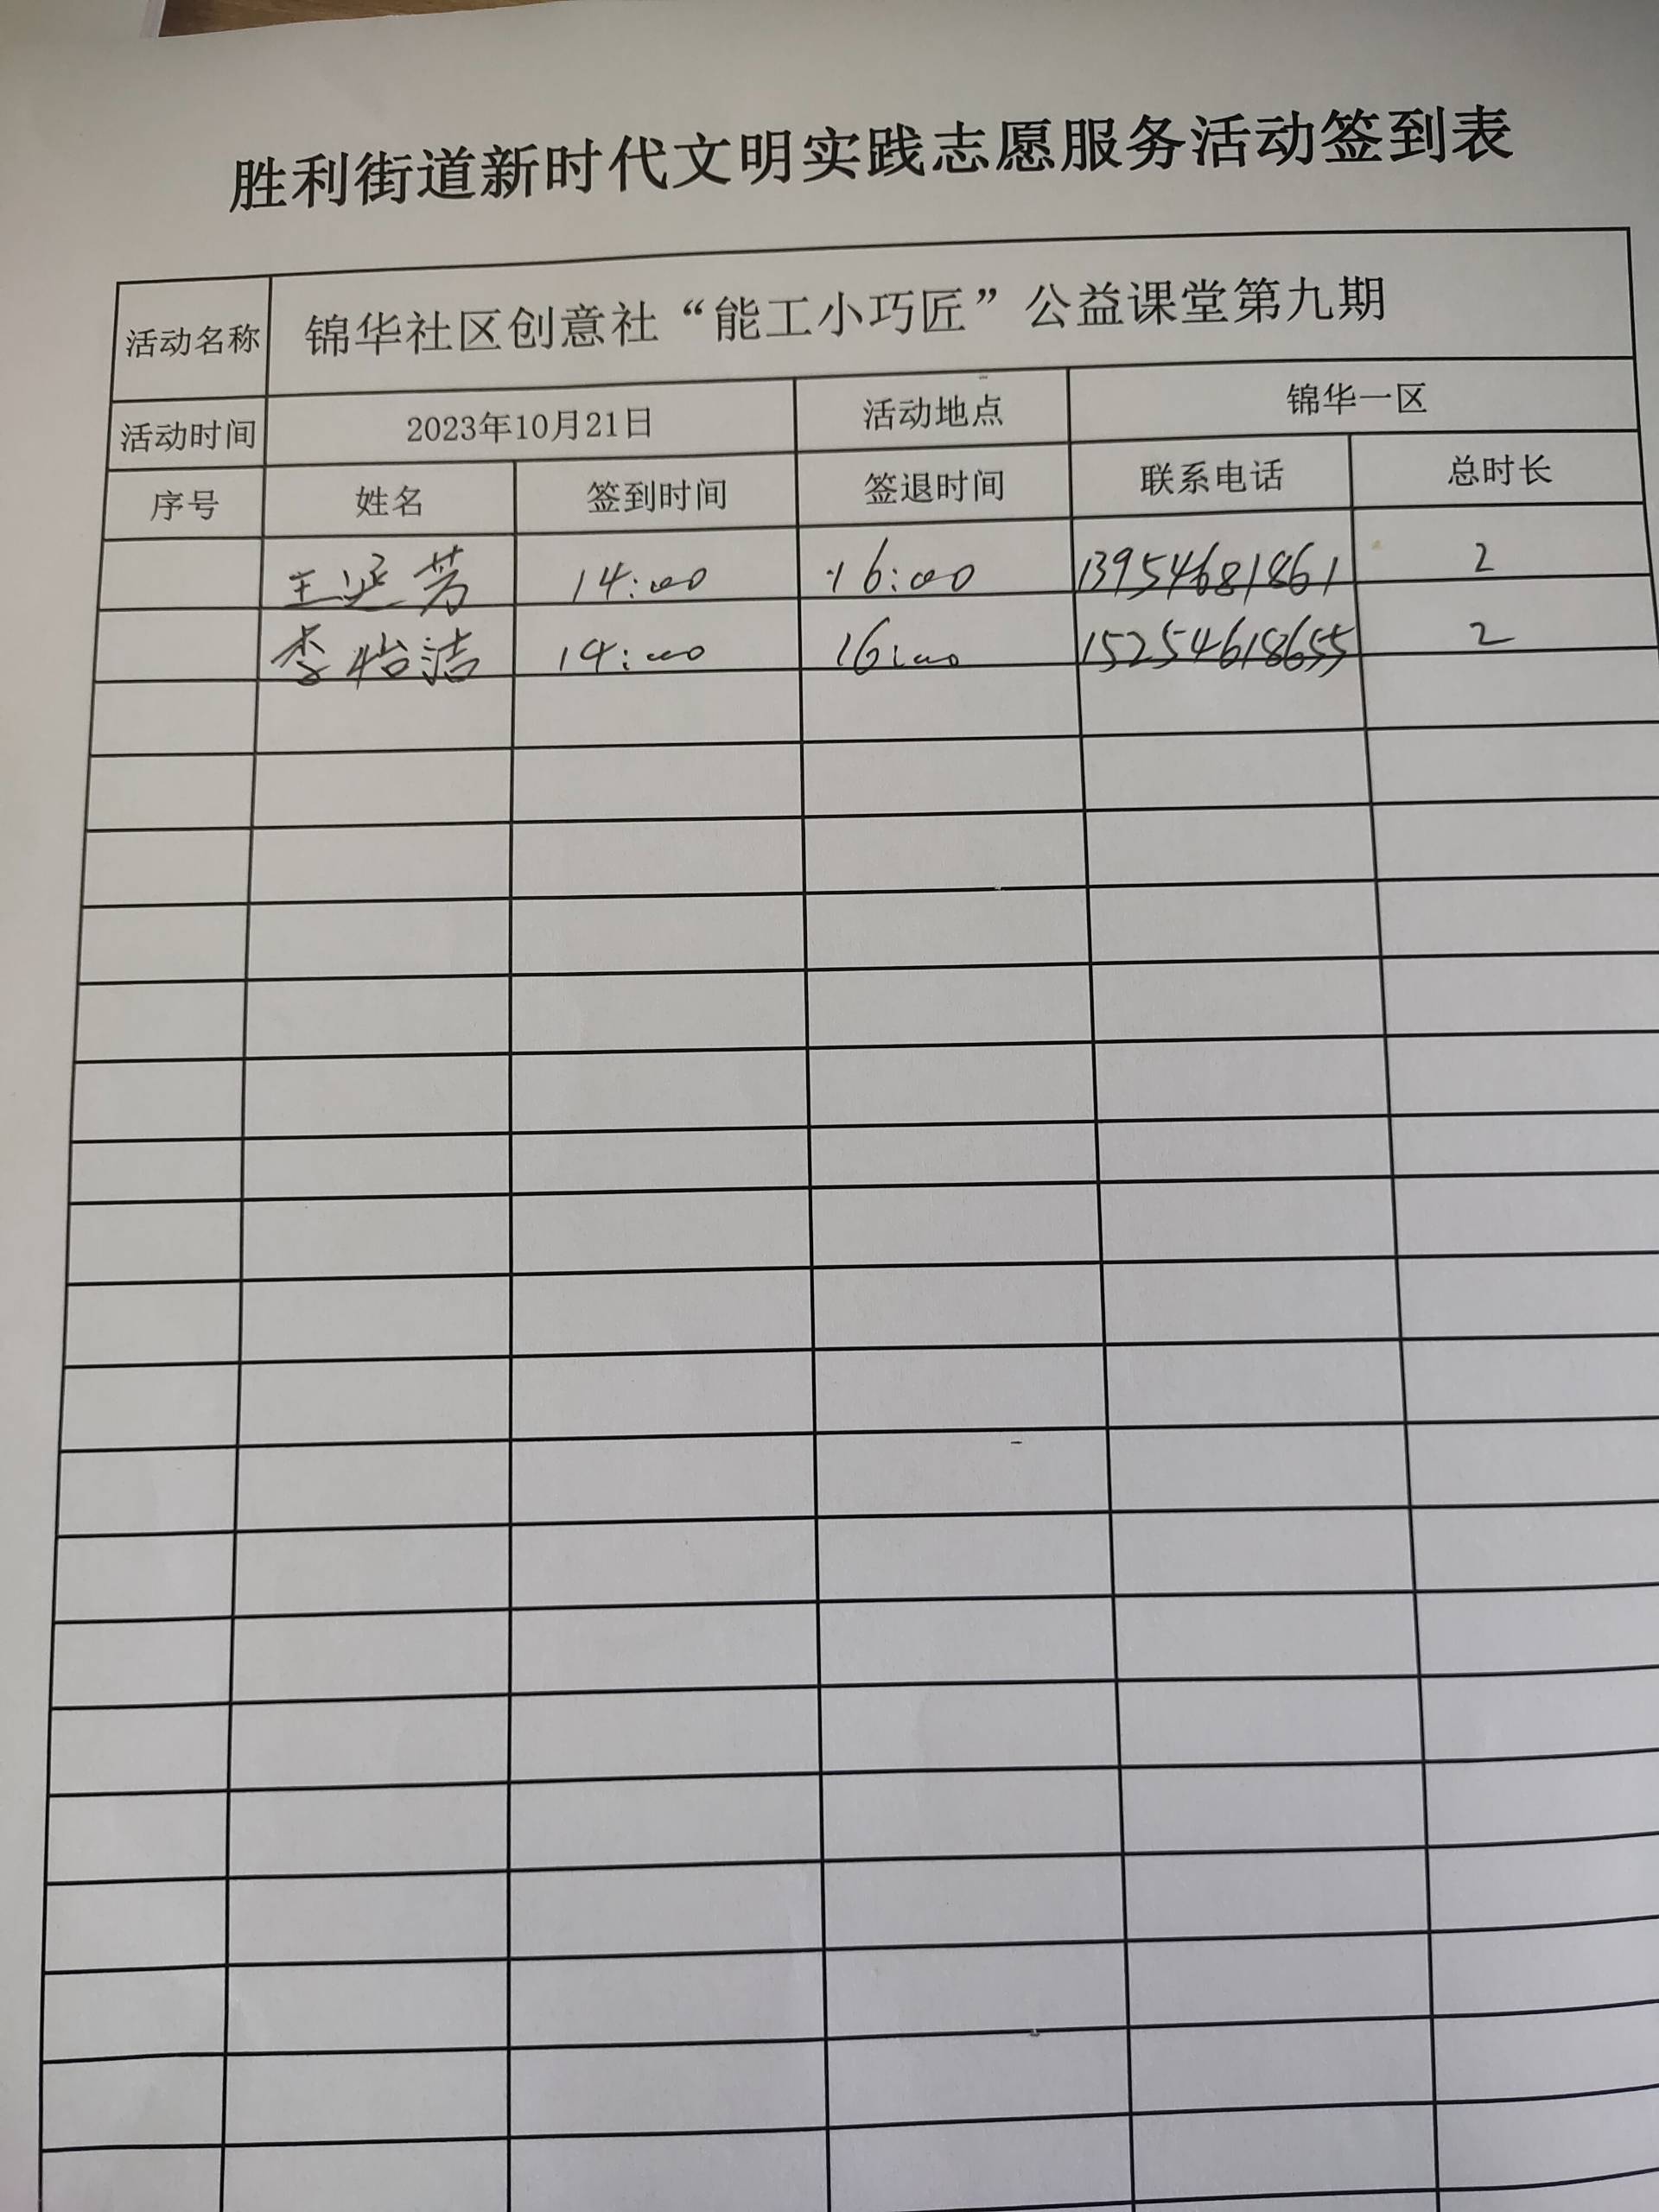 胜利街道新时代文明实践志愿服务活动签到表
活动名称 锦华社区创意社“能工小巧匠”公益课堂第九期
活动时间 2023年10月21日 活动地点 锦华一区
序号 姓名 签到时间 签退时间 联系电话 总时长
王延芳 14:00 16:00 13954681861 2
李怡洁 14:00 16:00 15254618655 2